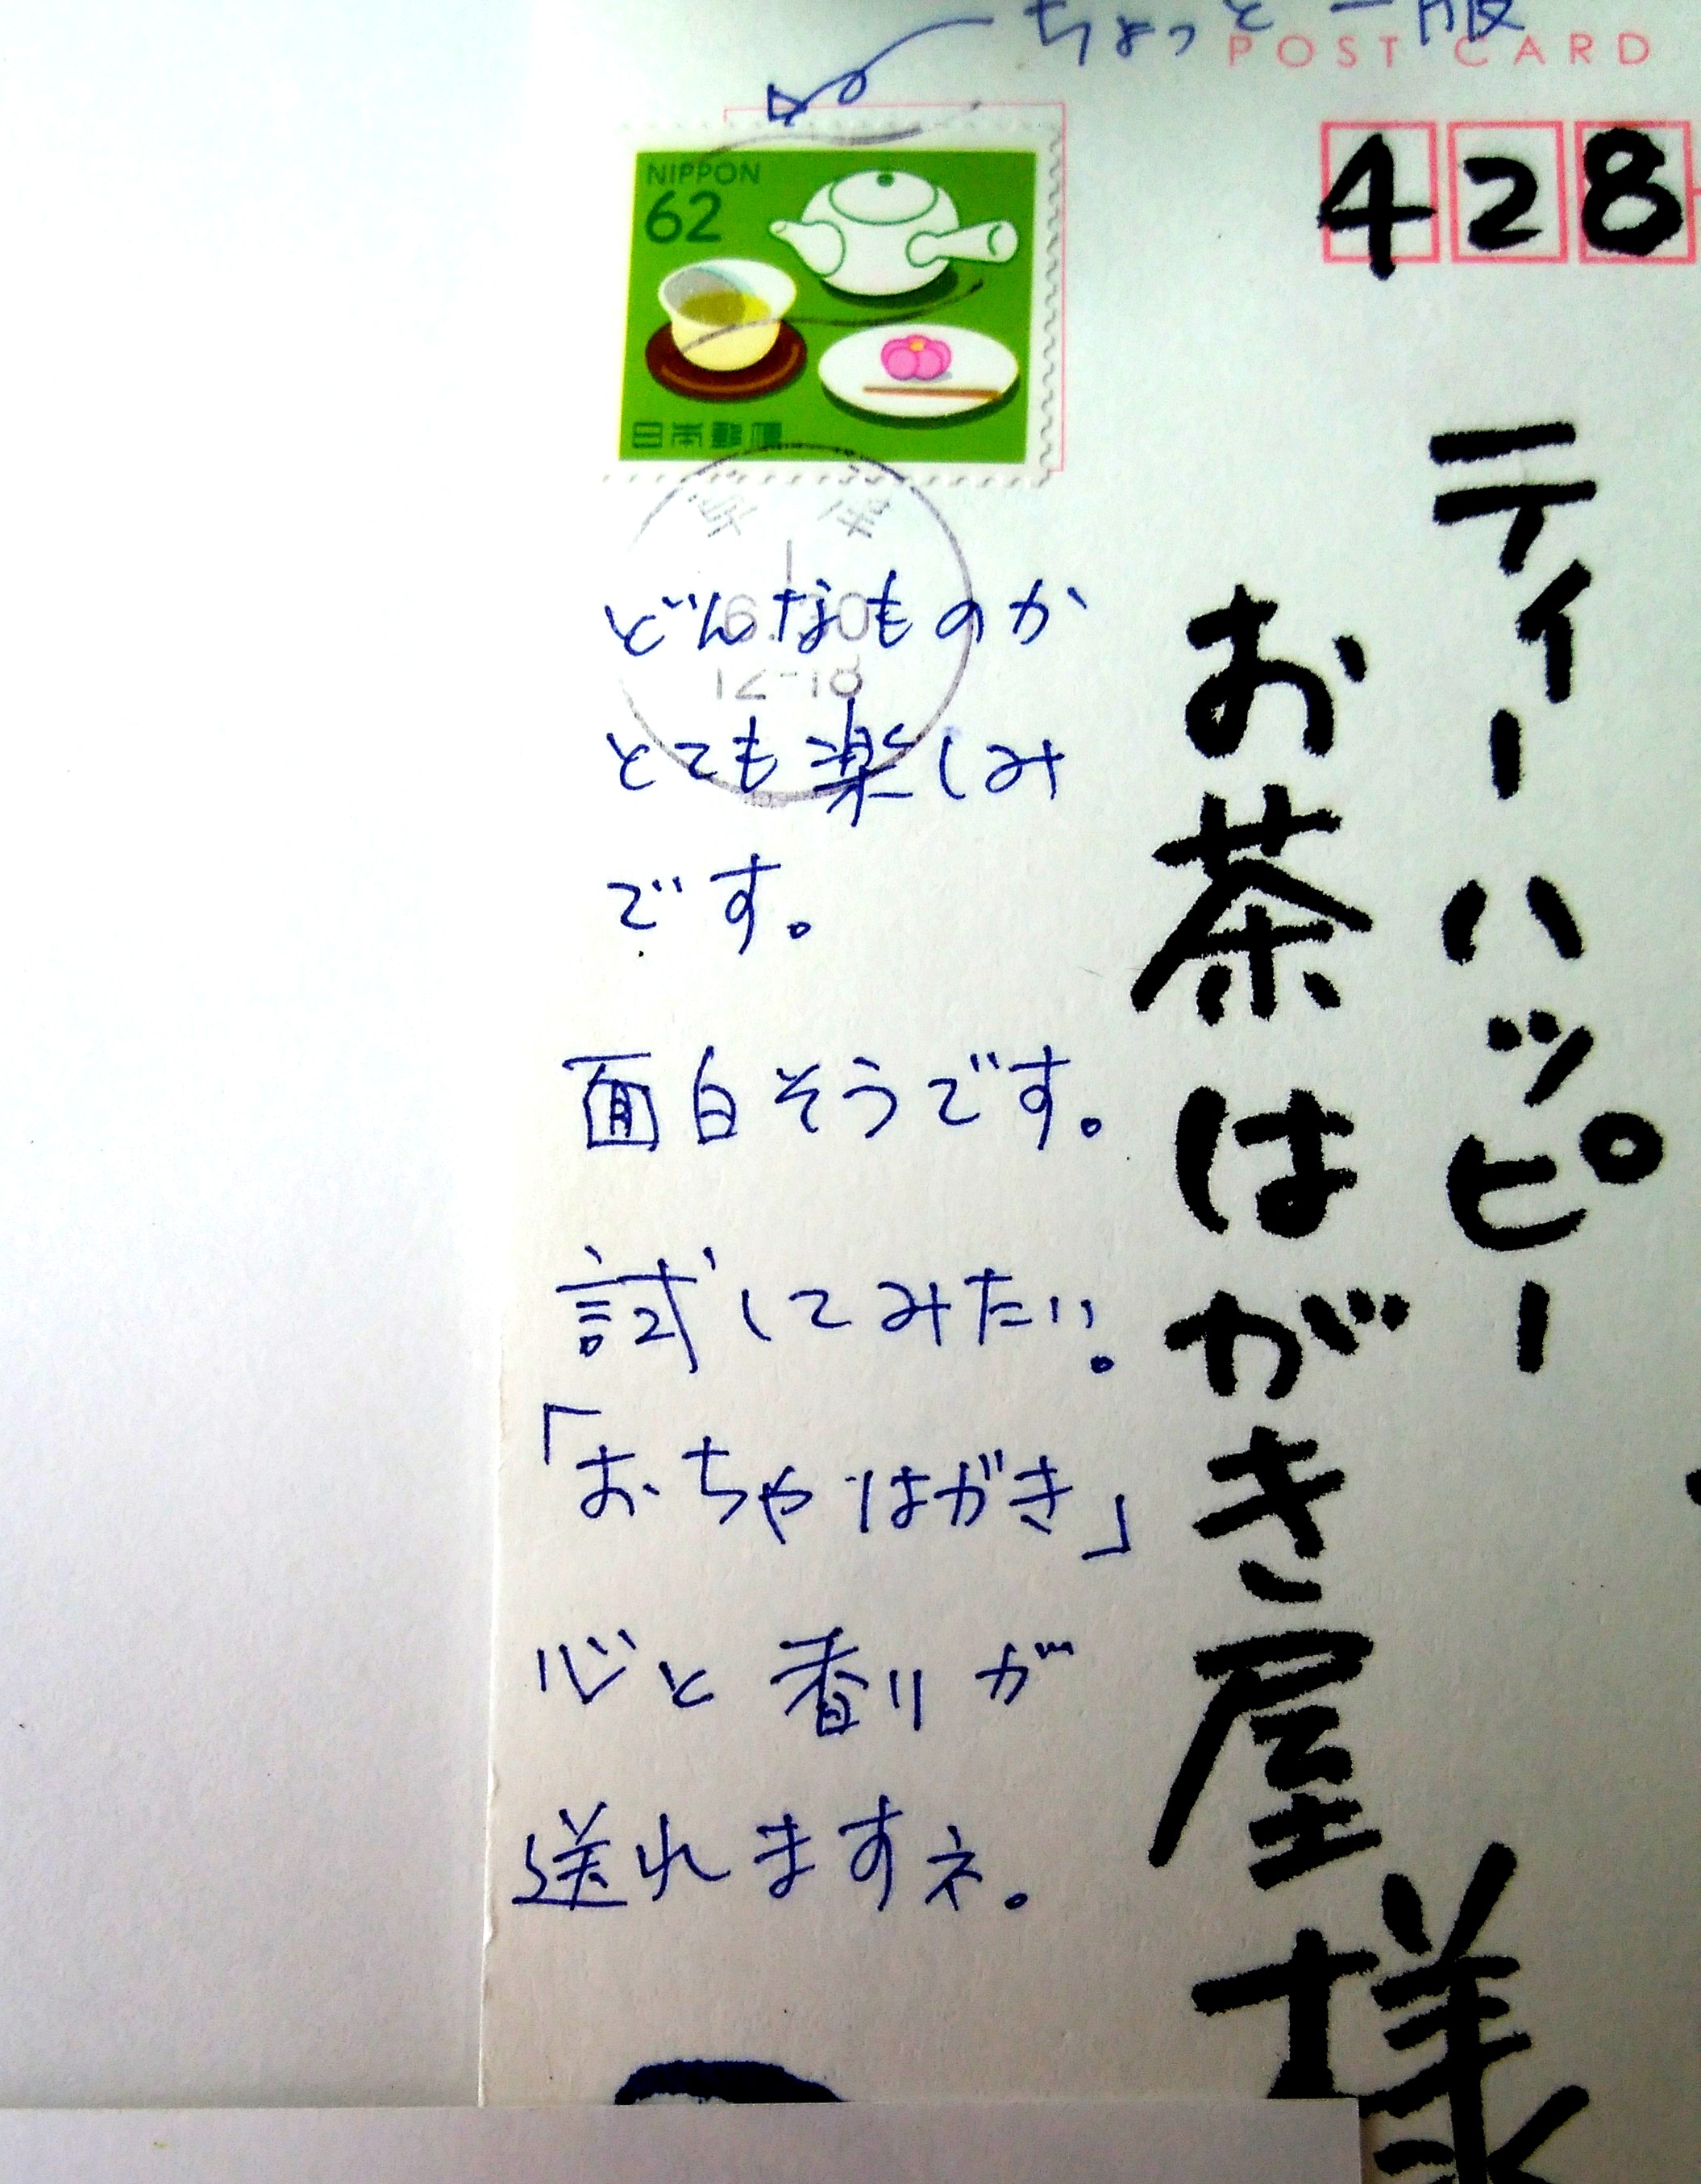 ちょっと一服
POST CARD
428
NIPPON
62
日本郵便
12-18
ティーハッピー
お茶はがき屋様
どんなものか
とても楽しみ
です。
面白そうです。
試してみたい。
「おちゃはがき」
心と香りが
送れますネ。